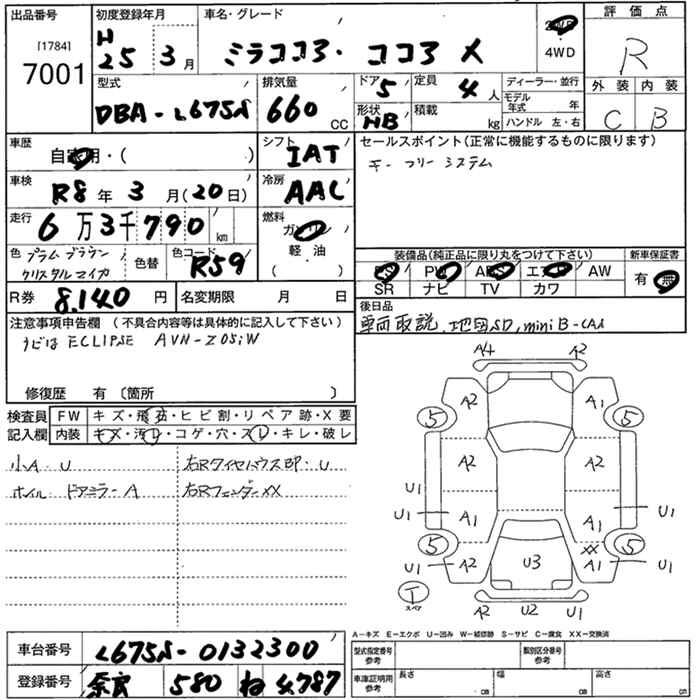 出品番号
[1784]
7001
初度登録年月
H
25年 3月
車名・グレード
ミラココア・ココア X
2WD
4WD
評価点
R
型式
DBA-L675S
排気量
660 CC
ドア 5
定員 4人
形状 HB
積載 kg
ディーラー・並行
モデル年式 年
ハンドル 左・右
外装 内装
C B
車歴
自家用・( )
シフト
IAT
セールスポイント(正常に機能するものに限ります)
キーフリーシステム
車検
R8年 3月(20日)
冷房
AAC
走行
6万3千790 km
燃料
ガソリン
軽油
( ・ )
色 プラムブラウン
クリスタルマイカ
色替
色コード
R59
装備品(純正品に限り丸をつけて下さい)
新車保証書
PS PW ABS エアB AW
SR ナビ TV カワ
有・無
R券 8,140円
名変期限 月 日
後日品
車両取説、地図SD, miniB-CAS
注意事項申告欄 (不具合内容等は具体的に記入して下さい)
ナビは ECLIPSE AVN-Z05iW
修復歴 有〔箇所 〕
検査員
記入欄
FW キズ・飛石・ヒビ割・リペア跡・X要
内装 キズ・汚レ・コゲ・穴・スレ・キレ・破レ
小A・U
右Rタイヤハウス凹・U
ホイル・ドアミラーA
右Rフェンダー XX
A4 A2
A2 A1
5 5
A2 A2
U1 U1
A1 A1
5 5
XX
U1 A2 U3 A1 U1
T
スペア
A2 U2 A2
A-キズ E-エクボ U-凹み W-補修跡 S-サビ C-腐食 XX-交換済
車台番号 L675S-0132300
型式指定番号
参考
類別区分番号
参考
登録番号 奈良 580 ね 4787
車庫証明用
参考
長さ cm
幅 cm
高さ cm